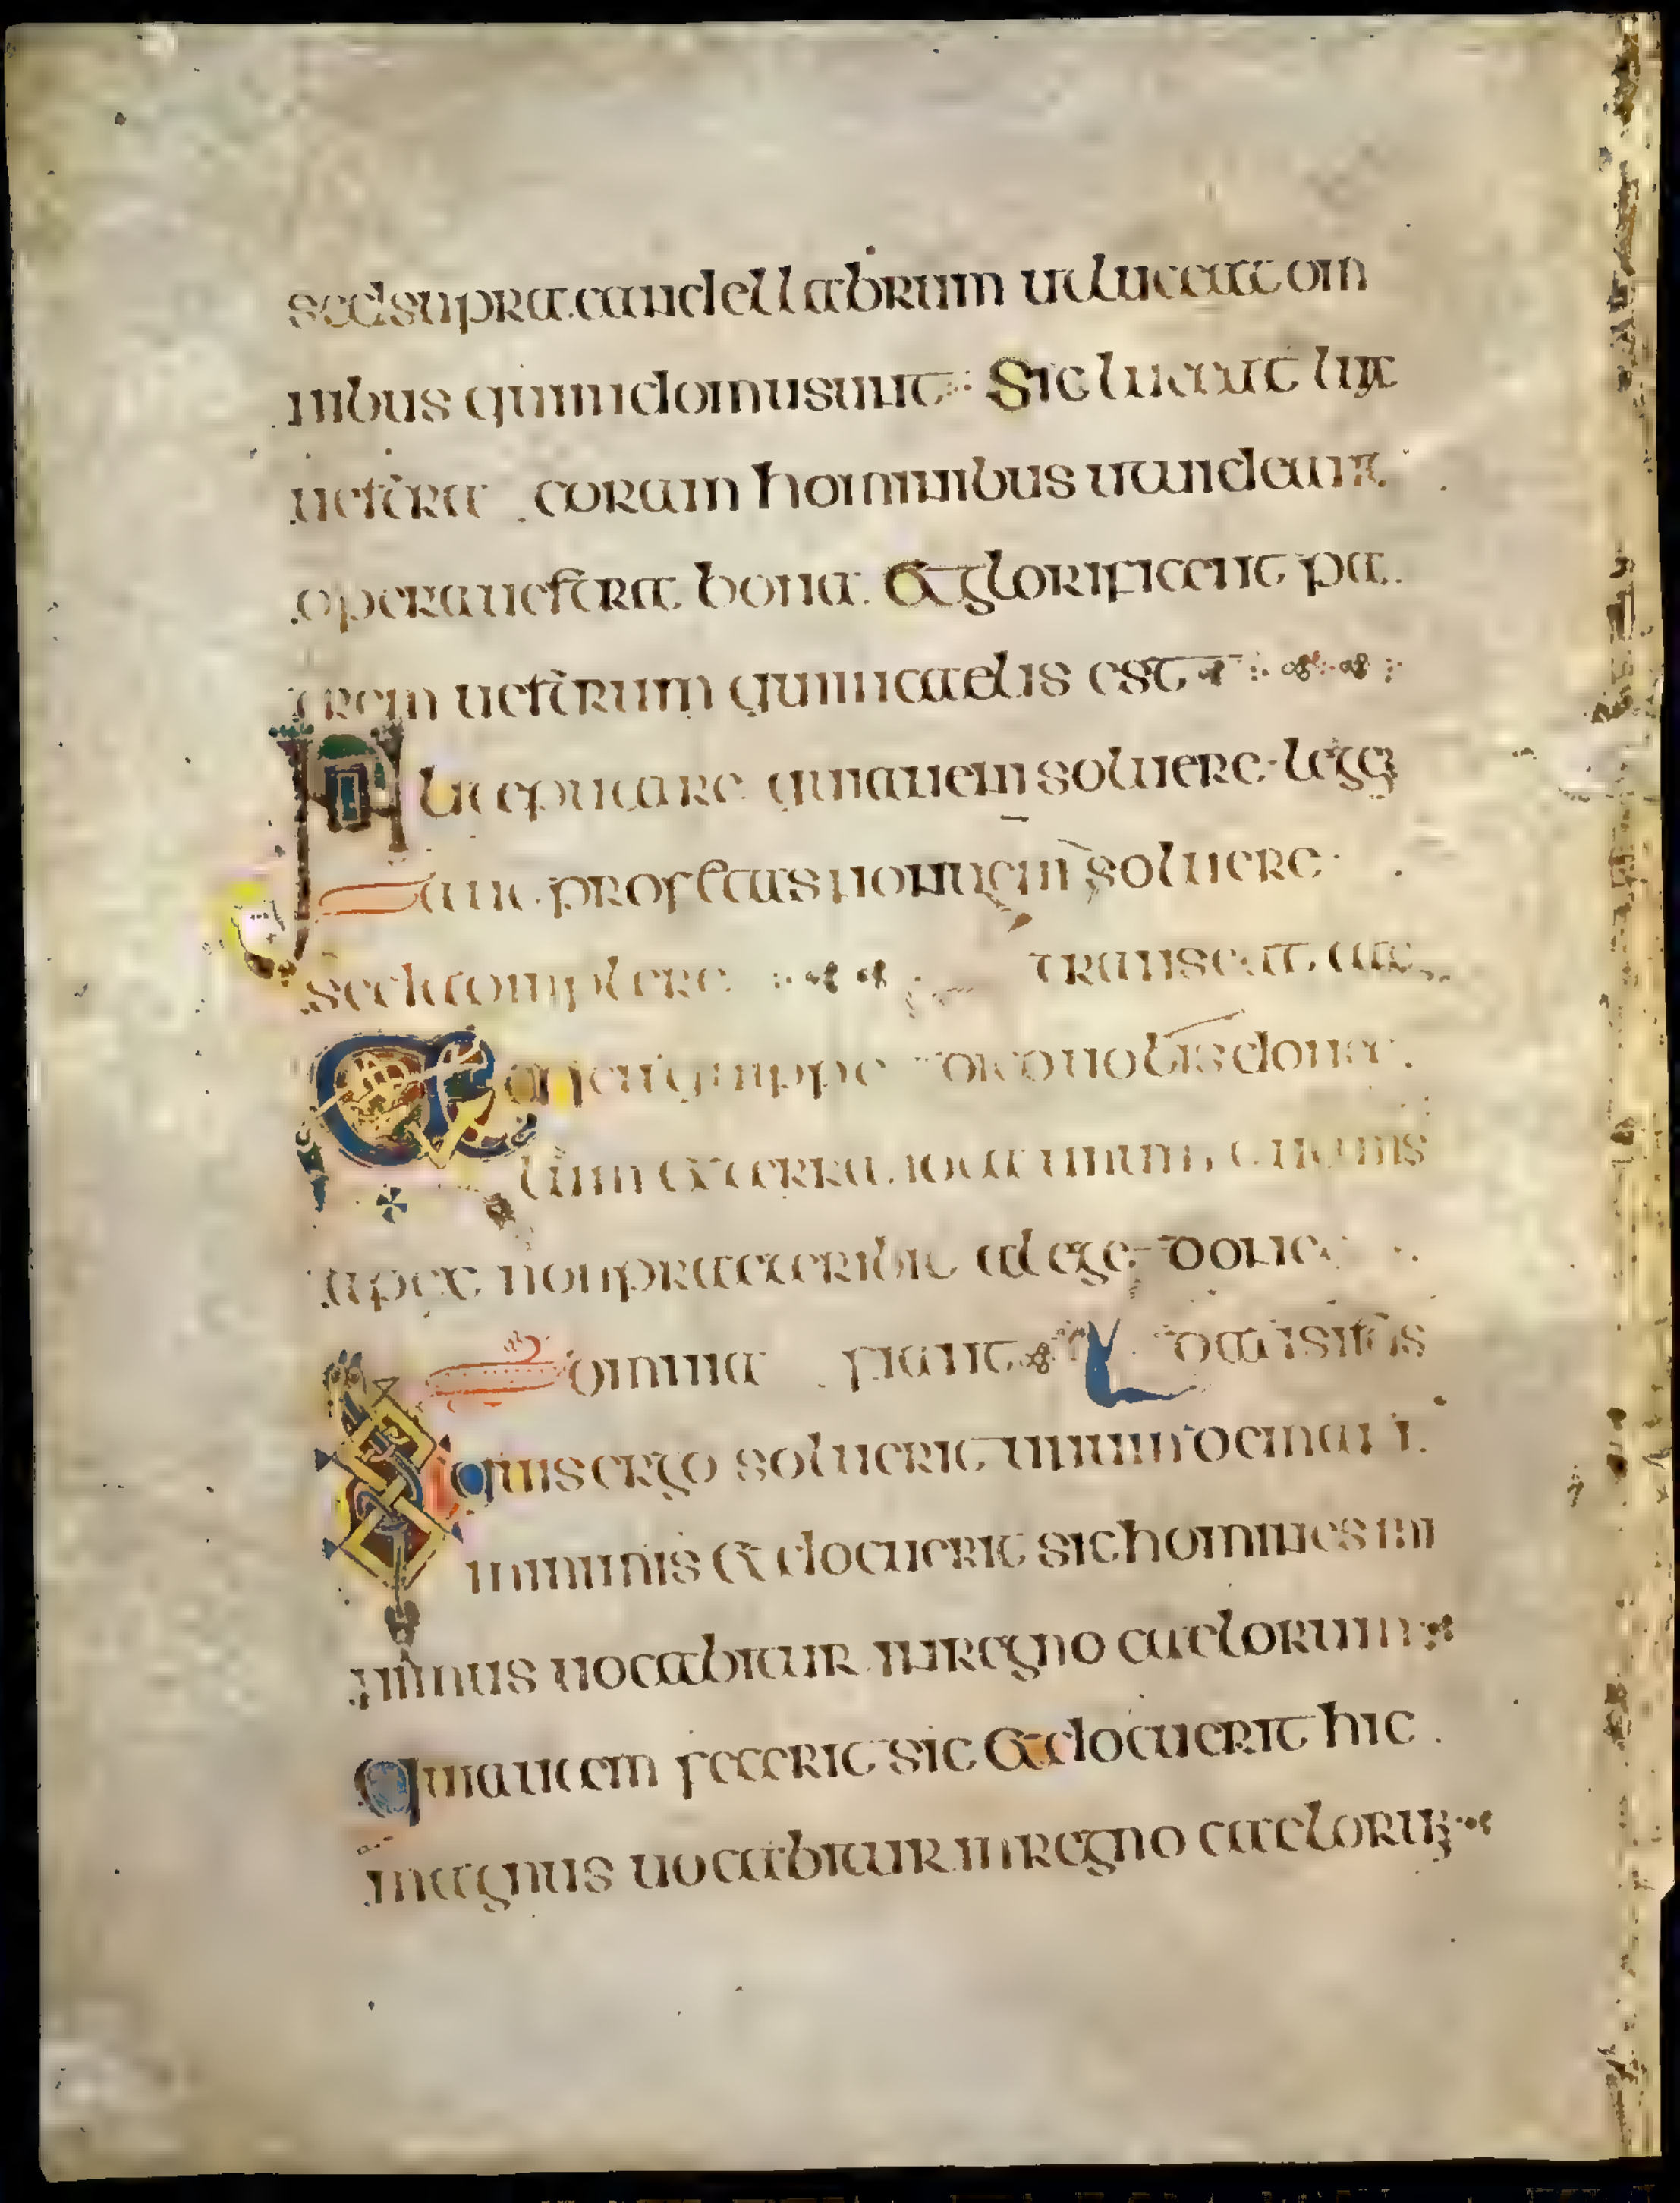 sed supra candellabrum ut luceat om
nibus qui in domu sunt Sic luceat lux
uestra coram hominibus ut uideant
opera uestra bona Et glorificent pa
trem uestrum qui in caelis est
N lite putare quia ueni soluere lege
aut profetas non ueni soluere
sed adomplere transeat cae
Amen quippe dico uobis donec
lum et terra iota unum unus
apex non praeteribit a lege donec
omnia fiant
quis ergo soluerit unum de man
minimis et docuerit sic homines mi
nimus uocabitur in regno caelorum
Qui autem fecerit sic et docuerit hic
magnus uocabitur in regno caeloru